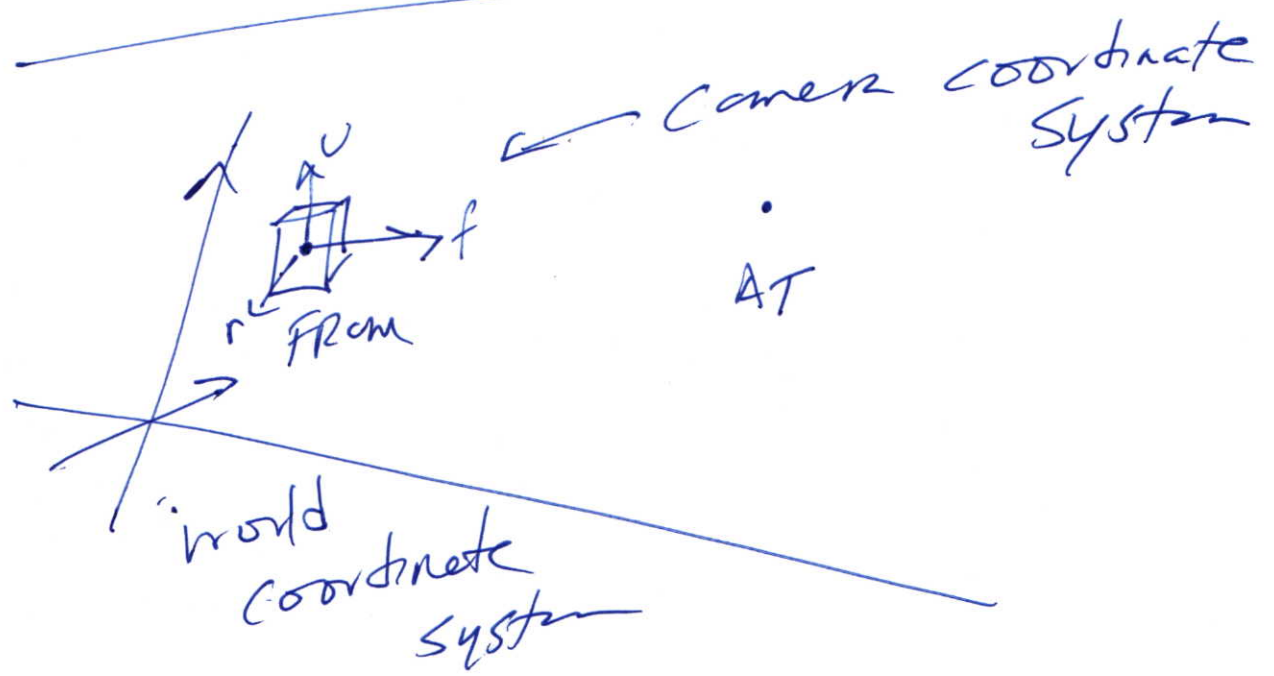 camera coordinate
system
U
f
AT
r
FROM
world
coordinate
system